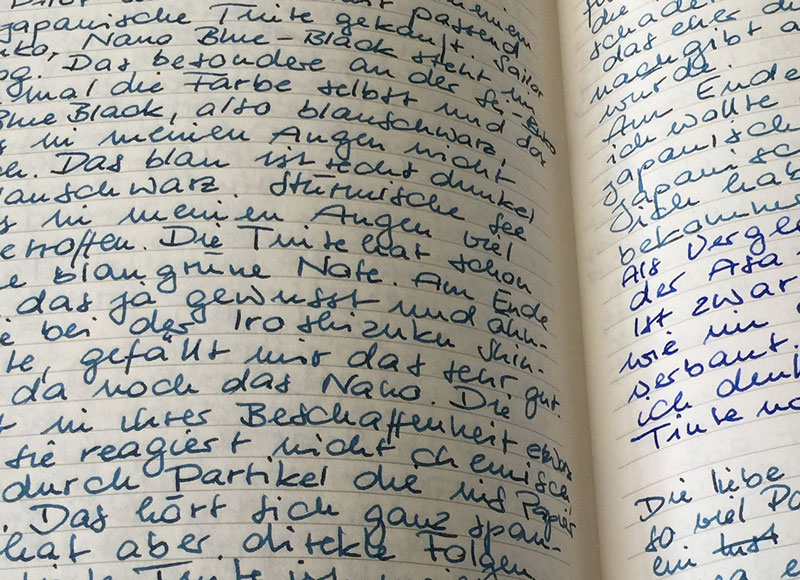 japanische Tinte gekauft. Sailor
Nano Blue-Black steht im
Das besondere an der Sei-Boku
mal die Farbe selbst und das
Blue Black, also blauschwarz,
in meinen Augen nicht
Das blau ist recht dunkel
lauschwarz. Stürmische See
in meinen Augen viel
etroffen. Die Tinte hat schon
e blaugrüne Note. Am Ende
das ja gewusst und ähn-
e bei der Iroshizuku Shin-
te, gefällt mir das sehr gut.
da noch das Nano. Die
t in ihrer Beschaffenheit etwas
Sie reagiert nicht chemisch
durch Partikel die ins Papier
. Das hört sich ganz span-
hat aber direkte Folgen
die
schade
das eher d
nachgibt a
wurde.
Am Ende
ich wollte
japanisch
japanisc
Sich hab
bekomme
Als Vergle
der Asa-
ist zwar
wie im
verbaut.
ich denk
Tinte no
Die liebe
so viel Pa
ein